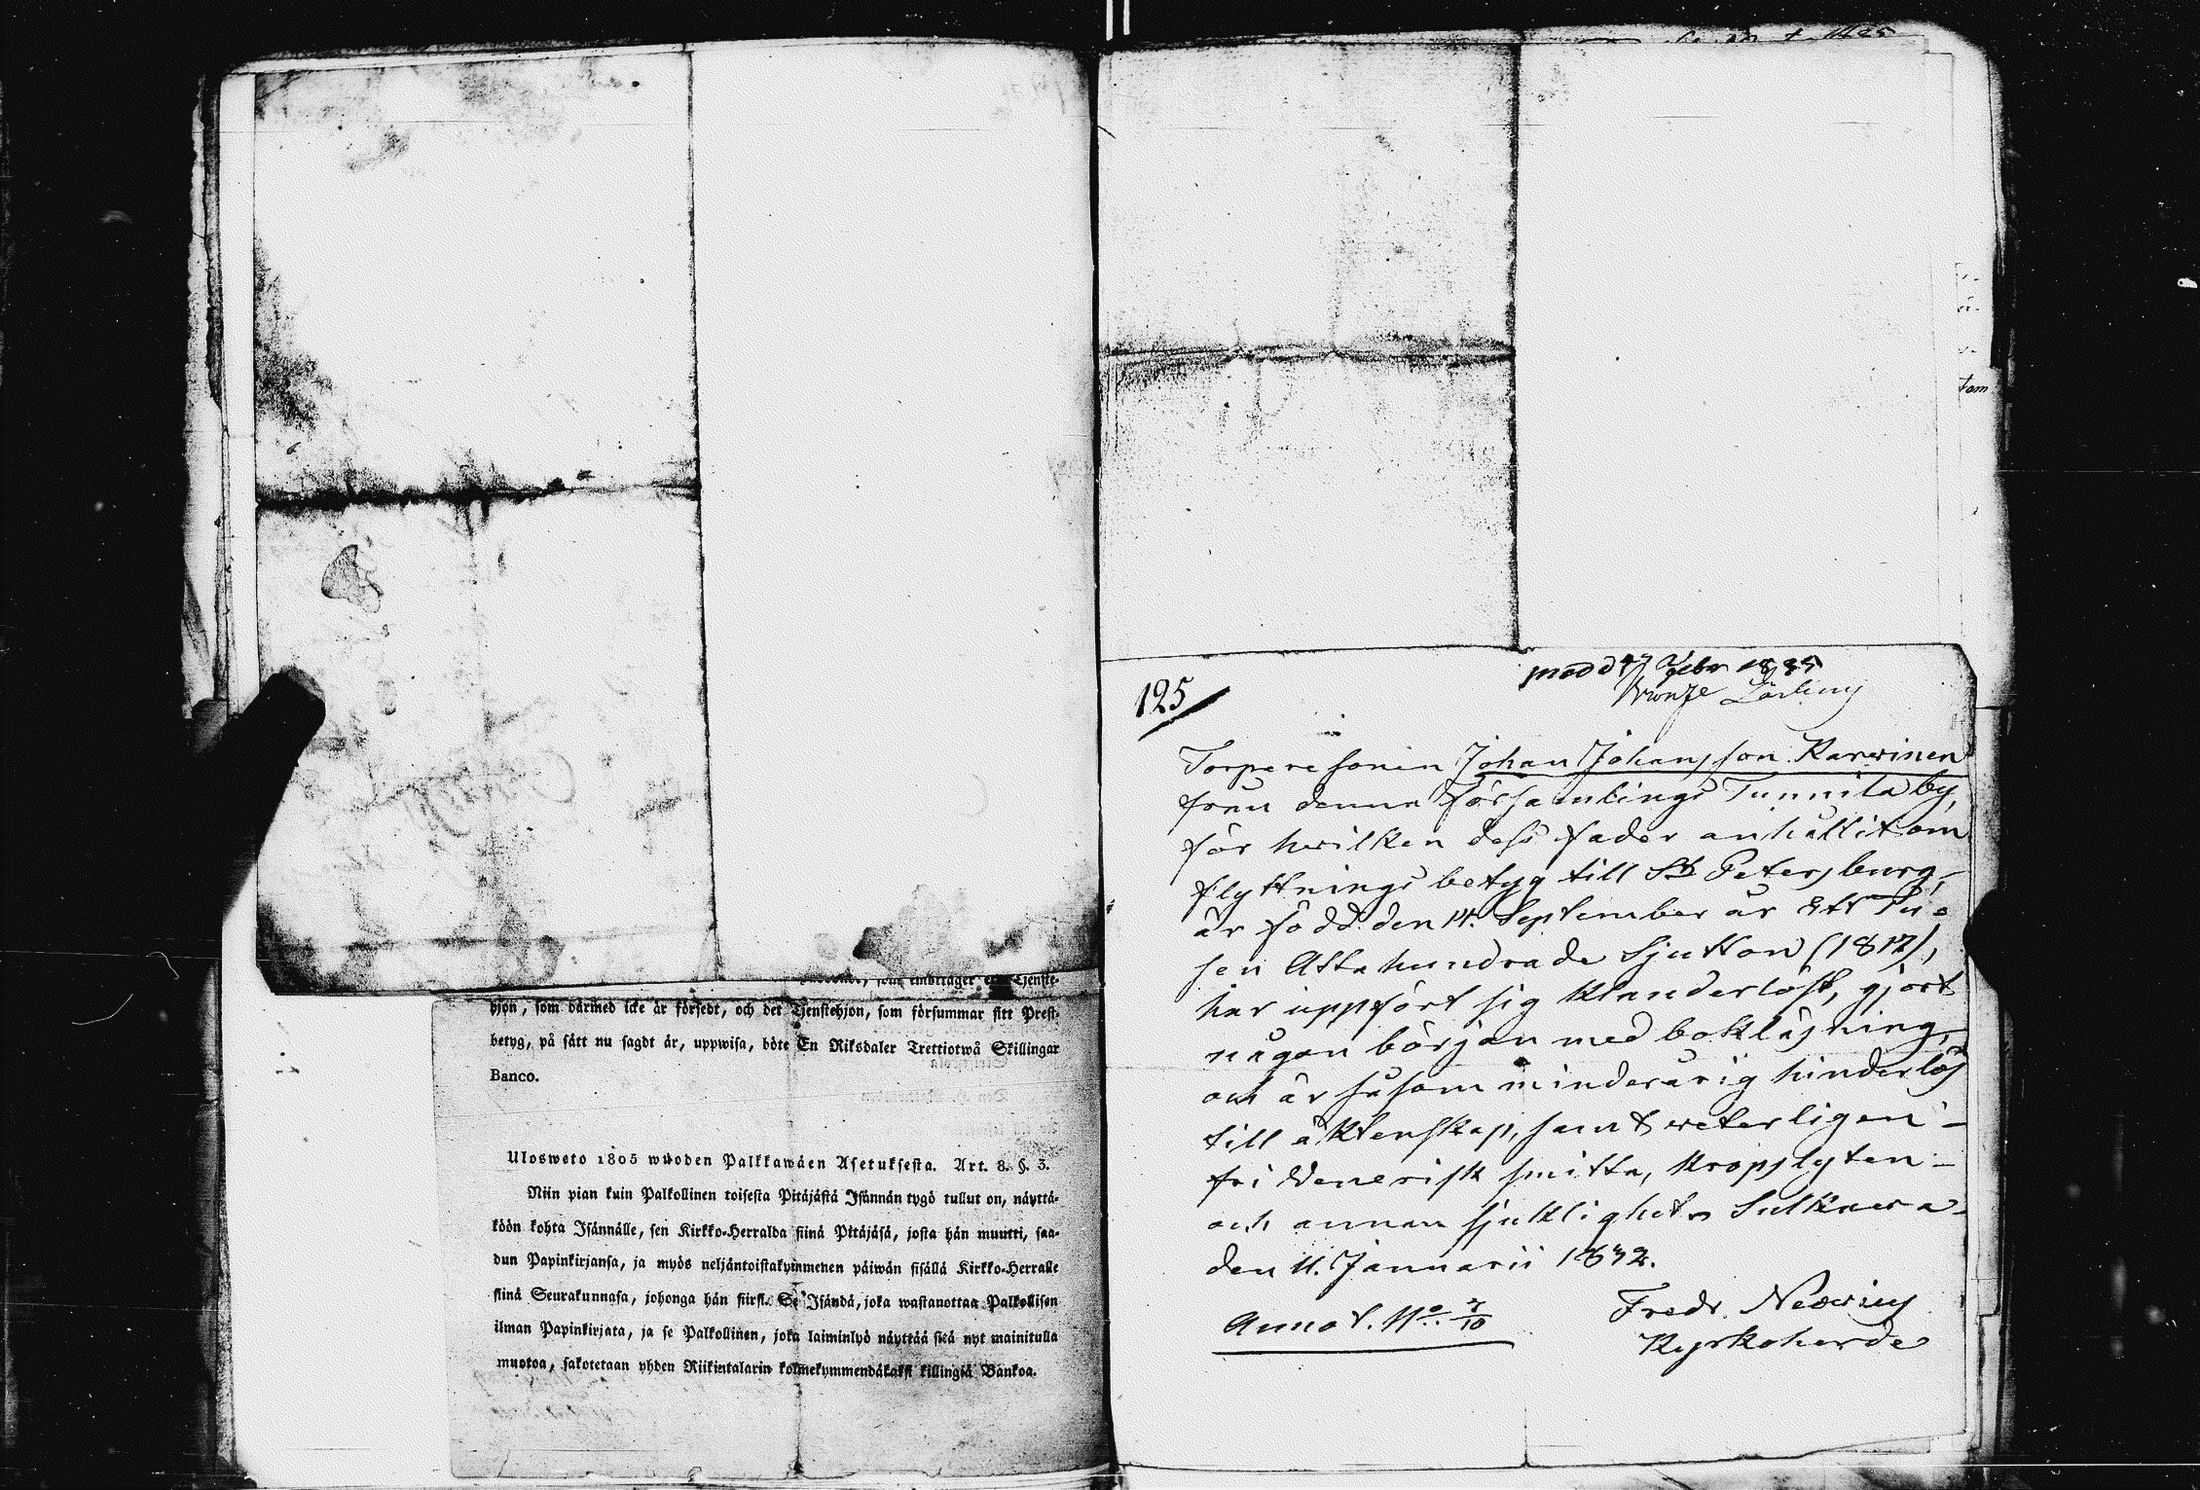 hjon, som därmed icke är försedt, och det Tjenstehjon, som försummar sitt Prest-
betyg, på sätt nu sagdt är, uppwisa, böte En Riksdaler Trettiotwå Skillingar
Banco.
Ulosweto 1805 wuoden Palkkawäen Asetuksesta. Art. 8. §. 3.
Niin pian kuin Palkollinen toisesta Pitäjästä Isännän tygö tullut on, näyttä-
köön kohta Isännälle, sen Kirkko-Herralda siinä Pitäjäsä, josta hän muutti, saa-
dun Papinkirjansa, ja myös neljäntoistakymmenen päiwän sisällä Kirkko-Herralle
siinä Seurakunnasa, johonga hän siirsi. Se Isändä, joka wastanottaa Palkollisen
ilman Papinkirjata, ja se Palkollinen, joka laiminlyö näyttää sitä nyt mainitulla
muotoa, sakotetaan yhden Riikintalarin kolmekymmendäkaksi killingiä Bankoa.
125
Torparesonen Johan Johansson Karwinen
från denna Församlings Tunnila by,
för hwilken dess fader anhållit om
flyttningsbetyg till St. Petersburg,
är född den 14. September år Ett Tu-
sen Åtta hundrade Sjutton (1817),
har uppfört sig klanderlöst, gjort
någon början med bokläsning,
och är såsom minderårig hinderlös
till äktenskap, samt weterligen
fri Wenerisk smitta, kropslyten
och annan sjuklighet. Sulkawa
den 11. Januarii 1832.
Fredr.
Kyrkoherde